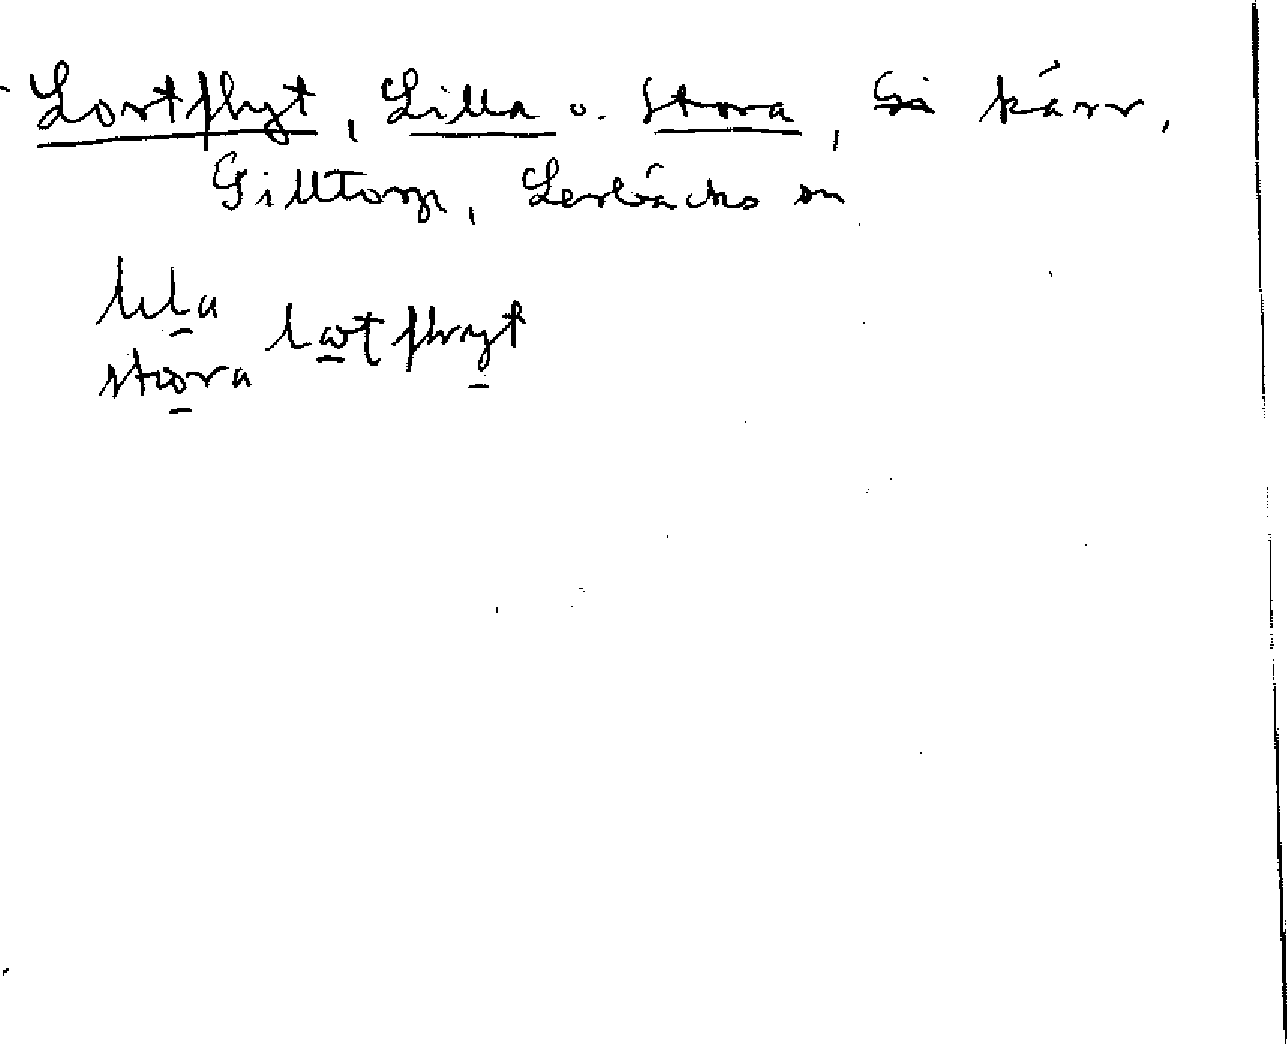 Lortflyt, Lilla o. Stora, kärr,
Gilltorp, Lerbäcks sn
lila
stora lortflyt